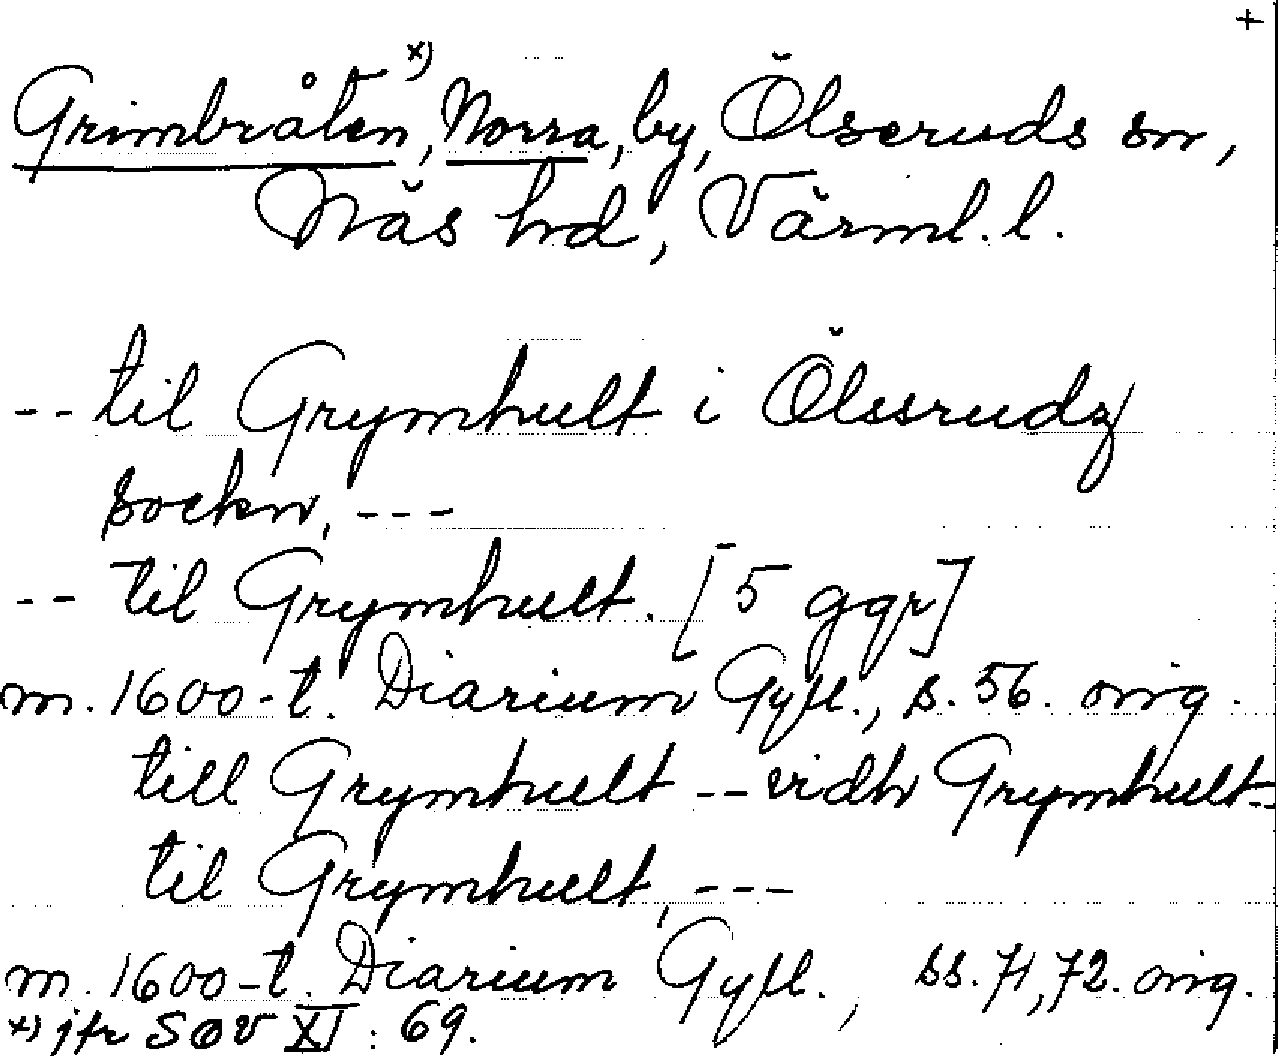 +
Grimbråten x), Norra, by, Ölseruds sn,
Näs hd, Värml. l.
-- til Grymhult i Ölssrudz
sockn, ---
-- til Grymhult. [5 ggr]
m. 1600-t. Diarium Gyll., s. 56. orig.
till Grymhult -- vidh Grymhult --
til Grymhult, ---
m. 1600-t. Diarium Gyll., ss. 71, 72. orig.
x) jfr SOV XI: 69.